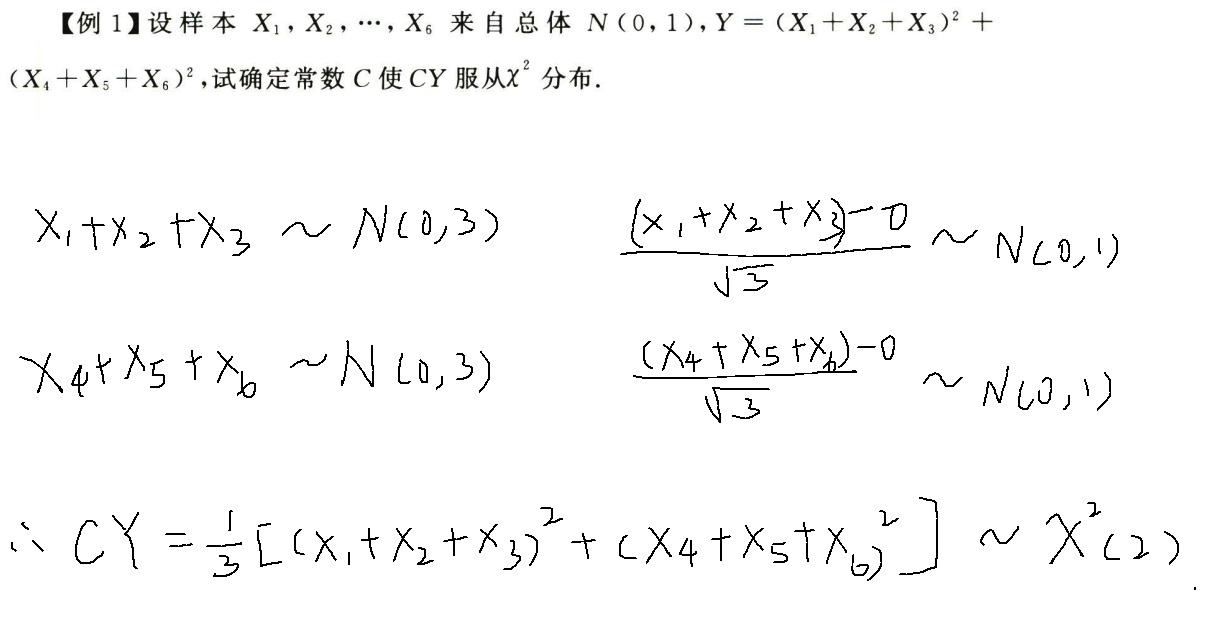 【例 1】设样本 X₁, X₂, …, X₆ 来自总体 N(0,1), Y = (X₁+X₂+X₃)² +
(X₄+X₅+X₆)²,试确定常数 C 使 CY 服从χ² 分布.
X₁+X₂+X₃ ~ N(0,3) ((X₁+X₂+X₃)-0)/√3 ~ N(0,1)
X₄+X₅+X₆ ~ N(0,3) ((X₄+X₅+X₆)-0)/√3 ~ N(0,1)
∴ CY = 1/3[(X₁+X₂+X₃)² + (X₄+X₅+X₆)²] ~ χ²(2).